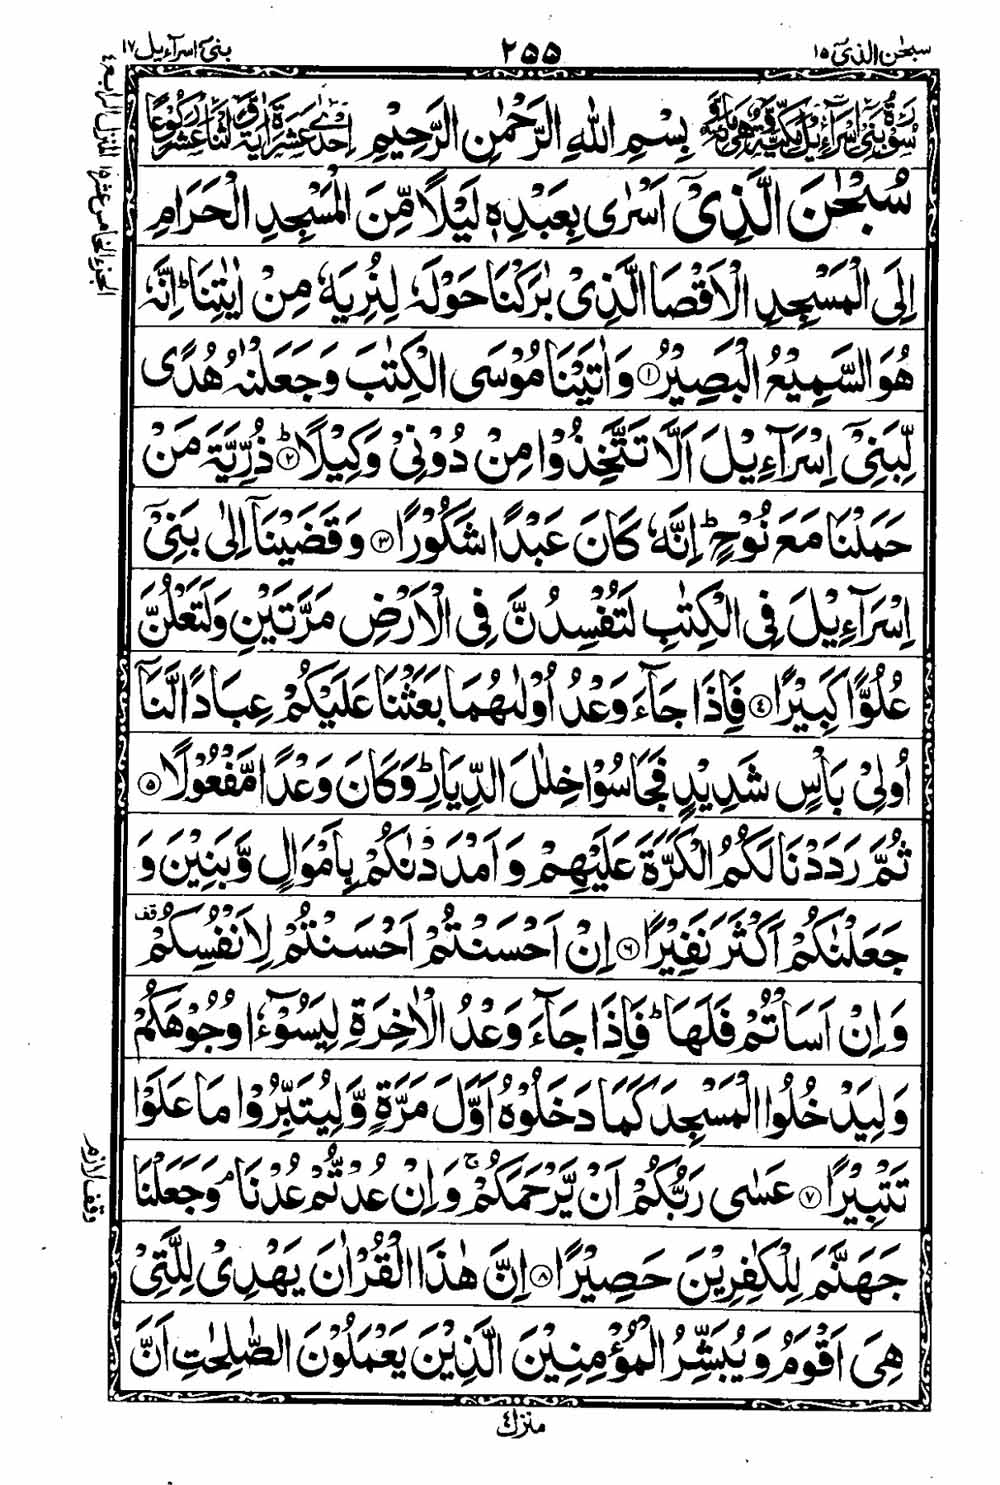 سبحٰن الذیٓ ١٥
٢٥٥
بنیٓ اسرآءیل ١٧
سُوْرَةُ بَنِیْٓ اِسْرَآءِیْلَ مَكِّیَّةٌ وَّهِیَ مِائَةٌ بِسْمِ اللّٰهِ الرَّحْمٰنِ الرَّحِیْمِ اِحْدٰی عَشْرَةَ اٰیَةً وَّاثْنَا عَشَرَ رُكُوْعًا
سُبْحٰنَ الَّذِیْۤ اَسْرٰی بِعَبْدِهٖ لَیْلًا مِّنَ الْمَسْجِدِ الْحَرَامِ
اِلَی الْمَسْجِدِ الْاَقْصَا الَّذِیْ بٰرَكْنَا حَوْلَهٗ لِنُرِیَهٗ مِنْ اٰیٰتِنَا ؕ اِنَّهٗ
هُوَ السَّمِیْعُ الْبَصِیْرُ ﴿۱﴾ وَ اٰتَیْنَا مُوْسَی الْكِتٰبَ وَ جَعَلْنٰهُ هُدًی
لِّبَنِیْۤ اِسْرَآءِیْلَ اَلَّا تَتَّخِذُوْا مِنْ دُوْنِیْ وَكِیْلًا ﴿۲﴾ ؕ ذُرِّیَّةَ مَنْ
حَمَلْنَا مَعَ نُوْحٍ ؕ اِنَّهٗ كَانَ عَبْدًا شَكُوْرًا ﴿۳﴾ وَ قَضَیْنَاۤ اِلٰی بَنِیْۤ
اِسْرَآءِیْلَ فِی الْكِتٰبِ لَتُفْسِدُنَّ فِی الْاَرْضِ مَرَّتَیْنِ وَ لَتَعْلُنَّ
عُلُوًّا كَبِیْرًا ﴿۴﴾ فَاِذَا جَآءَ وَعْدُ اُوْلٰىهُمَا بَعَثْنَا عَلَیْكُمْ عِبَادًا لَّنَاۤ
اُولِیْ بَاْسٍ شَدِیْدٍ فَجَاسُوْا خِلٰلَ الدِّیَارِ ؕ وَ كَانَ وَعْدًا مَّفْعُوْلًا ﴿۵﴾
ثُمَّ رَدَدْنَا لَكُمُ الْكَرَّةَ عَلَیْهِمْ وَ اَمْدَدْنٰكُمْ بِاَمْوَالٍ وَّ بَنِیْنَ وَ
جَعَلْنٰكُمْ اَكْثَرَ نَفِیْرًا ﴿۶﴾ اِنْ اَحْسَنْتُمْ اَحْسَنْتُمْ لِاَنْفُسِكُمْ قف
وَ اِنْ اَسَاْتُمْ فَلَهَا ؕ فَاِذَا جَآءَ وَعْدُ الْاٰخِرَةِ لِیَسُوْٓءٗا وُجُوْهَكُمْ
وَ لِیَدْخُلُوا الْمَسْجِدَ كَمَا دَخَلُوْهُ اَوَّلَ مَرَّةٍ وَّ لِیُتَبِّرُوْا مَا عَلَوْا
تَتْبِیْرًا ﴿۷﴾ عَسٰی رَبُّكُمْ اَنْ یَّرْحَمَكُمْ ۚ وَ اِنْ عُدْتُّمْ عُدْنَا ۘ وَ جَعَلْنَا
جَهَنَّمَ لِلْكٰفِرِیْنَ حَصِیْرًا ﴿۸﴾ اِنَّ هٰذَا الْقُرْاٰنَ یَهْدِیْ لِلَّتِیْ
هِیَ اَقْوَمُ وَ یُبَشِّرُ الْمُؤْمِنِیْنَ الَّذِیْنَ یَعْمَلُوْنَ الصّٰلِحٰتِ اَنَّ
المنزل الرابع ٤
الجزء الخامس عشر ١٥
وقف لازم
منزل ٤